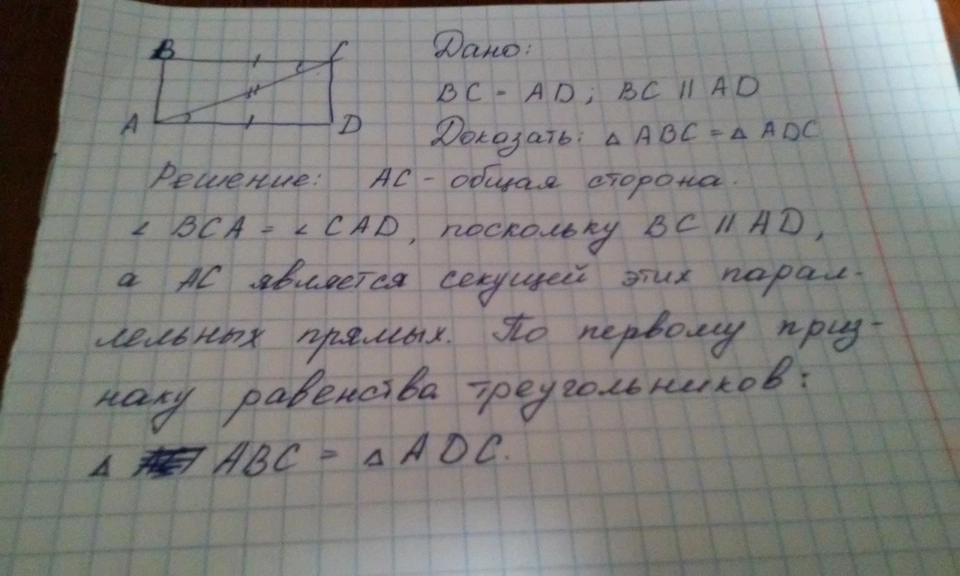 B C
A D
Дано:
BC = AD; BC || AD
Доказать: △ ABC = △ ADC
Решение: AC - общая сторона.
∠ BCA = ∠ CAD, поскольку BC || AD,
а AC является секущей этих парал-
лельных прямых. По первому приз-
наку равенства треугольников:
△ ABC = △ ADC.